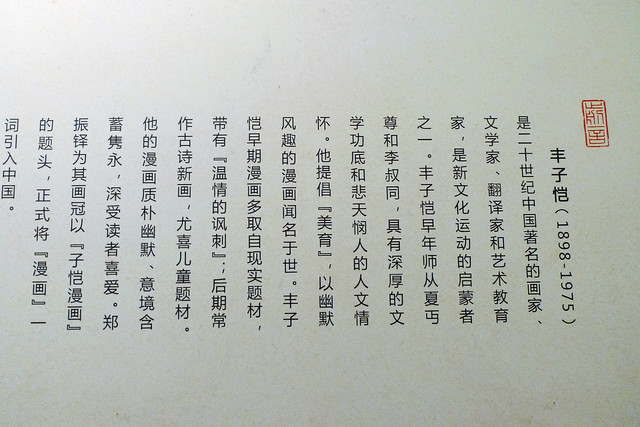 丰子恺（1898-1975）
是二十世纪中国著名的画家、
文学家、翻译家和艺术教育
家，是新文化运动的启蒙者
之一。丰子恺早年师从夏丏
尊和李叔同，具有深厚的文
学功底和悲天悯人的人文情
怀。他提倡『美育』，以幽默
风趣的漫画闻名于世。丰子
恺早期漫画多取自现实题材，
带有『温情的讽刺』；后期常
作古诗新画，尤喜儿童题材。
他的漫画质朴幽默、意境含
蓄隽永，深受读者喜爱。郑
振铎为其画冠以『子恺漫画』
的题头，正式将『漫画』一
词引入中国。